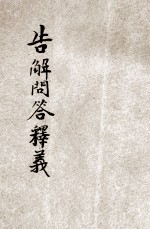 告解問答釋義